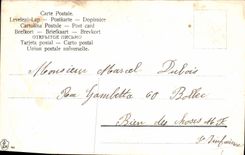 Carte Postale.
Levelezo-Lap — Postkarte — Dopisnice
Cartolina Postale — Post card
Brefkort — Briefkaart — Brevkort
ОТКРЫТОЕ ПИСЬМО
Tarjeta postal — Carta postal
Union postale universelle.
Monsieur Marcel Dubois
Rue Gambetta 60 Bolbec
Bien des choses